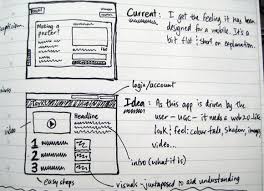 Making a poster?
Current: I get the feeling it has been
designed for a mobile. It's a
bit flat & short on explanation.
login/account
Idea: As this app is driven by the
user - UGC - it needs a web 2.0 like
look & feel: colour fade, shadow, images,
video...
video
Headline
1
2
3
intro (what it is)
easy steps
visuals - juxtaposed to aid understanding